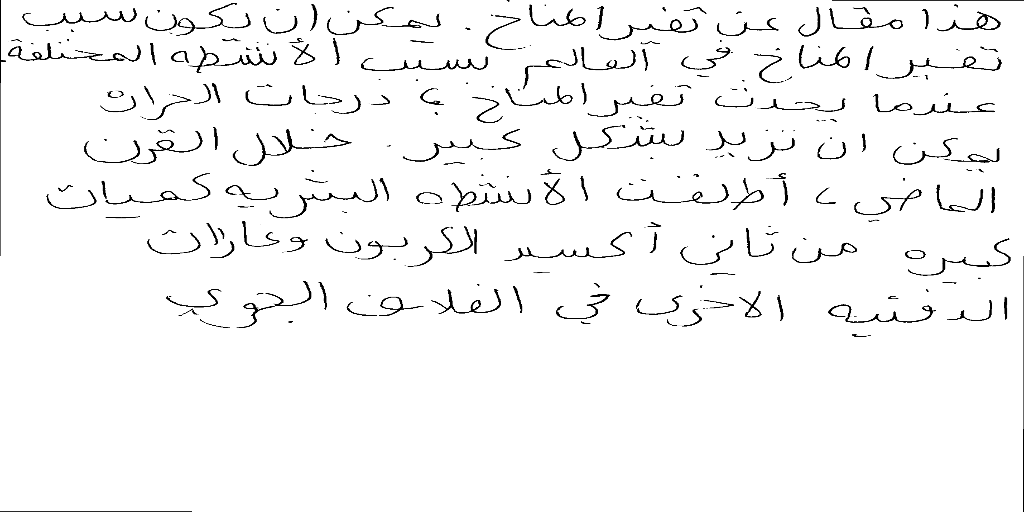 هذا مقال عن تغير المناخ. يمكن ان يكون سبب
تغير المناخ في العالم بسبب الأنشطه المختلفة
عندما يحدث تغير المناخ ، درجات الحراة
يمكن ان تزيد بشكل كبير. خلال القرن
الماضي ، أطلقت الأنشطه البشريه كميات
كبيره من ثاني أكسيد الكربون وغازات
الدفئيه الاخرى في الغلاف الجوي